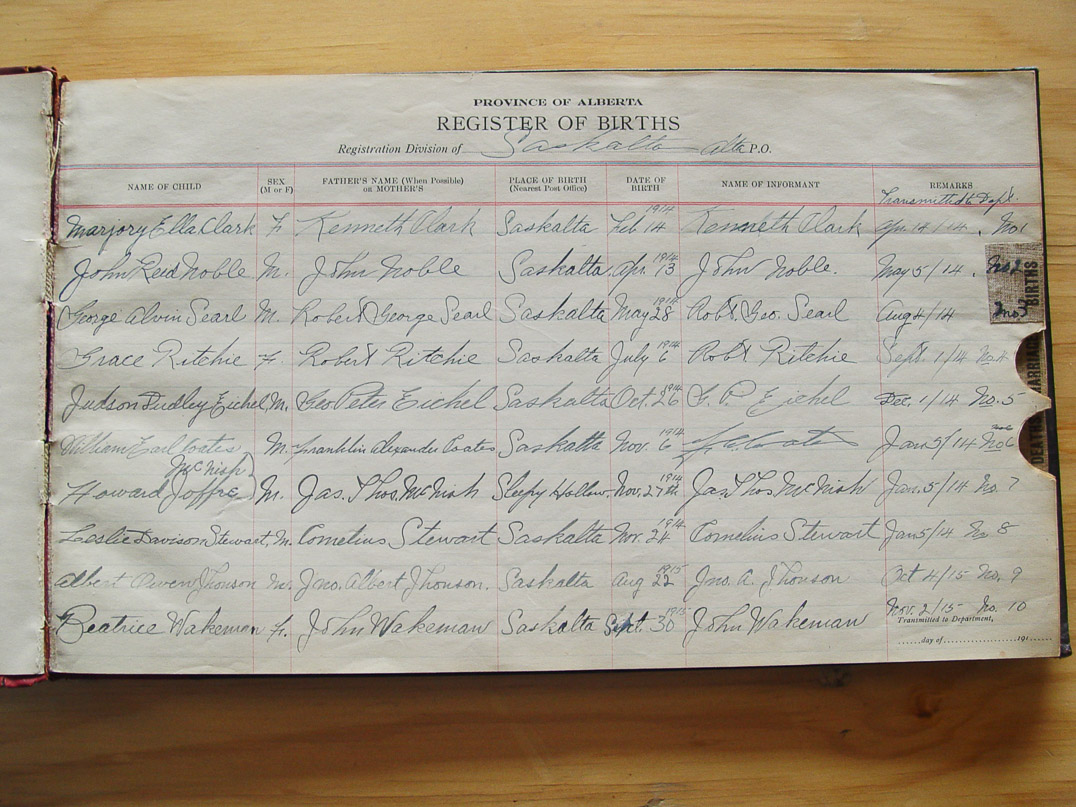 PROVINCE OF ALBERTA
REGISTER OF BIRTHS
Registration Division of Saskalta Alta P.O.
NAME OF CHILD SEX (M or F) FATHER'S NAME (When Possible) or MOTHER'S PLACE OF BIRTH (Nearest Post Office) DATE OF BIRTH NAME OF INFORMANT REMARKS
Transmitted to Dept.
Marjory Ella Clark F. Kenneth Clark Saskalta Feb 14 1914 Kenneth Clark Apr. 14/14. No 1
John Reid Noble M. John Noble Saskalta Apr. 13 1914 John Noble. May 5/14. No 2
George Alvin Searl M. Robert George Searl Saskalta May 28 1914 Robt. Geo. Searl Aug 4/14 No 3
Grace Ritchie F. Robert Ritchie Saskalta July 6 1914 Robt Ritchie Sept. 1/14 No 4
Judson Dudley Eichel M. Geo Peter Eichel Saskalta Oct. 26 1914 G. P. Eichel Dec. 1/14 No. 5
William Earl Coates M. Franklin Alexander Coates Saskalta Nov. 6 1914 Coates Jan 5/14 No 6
McNish
Howard Joffre M. Jas. Thos. McNish Sleepy Hollow Nov. 27th 1914 Jas. Thos McNish Jan. 5/14 No. 7
Leslie Davison Stewart. M. Cornelius Stewart Saskalta Nov. 24 1914 Cornelius Stewart Jan 5/14 No 8
Albert Owen Jhonson M. Jno. Albert Jhonson. Saskalta Aug 22 1915 Jno. A. Jhonson Oct 4/15 No. 9
Beatrice Wakeman F. John Wakeman Saskalta Sept. 30 1915 John Wakeman Nov. 2/15 No. 10
Transmitted to Department,
......day of......................191......
BIRTHS
MARRIAGES
DEATHS